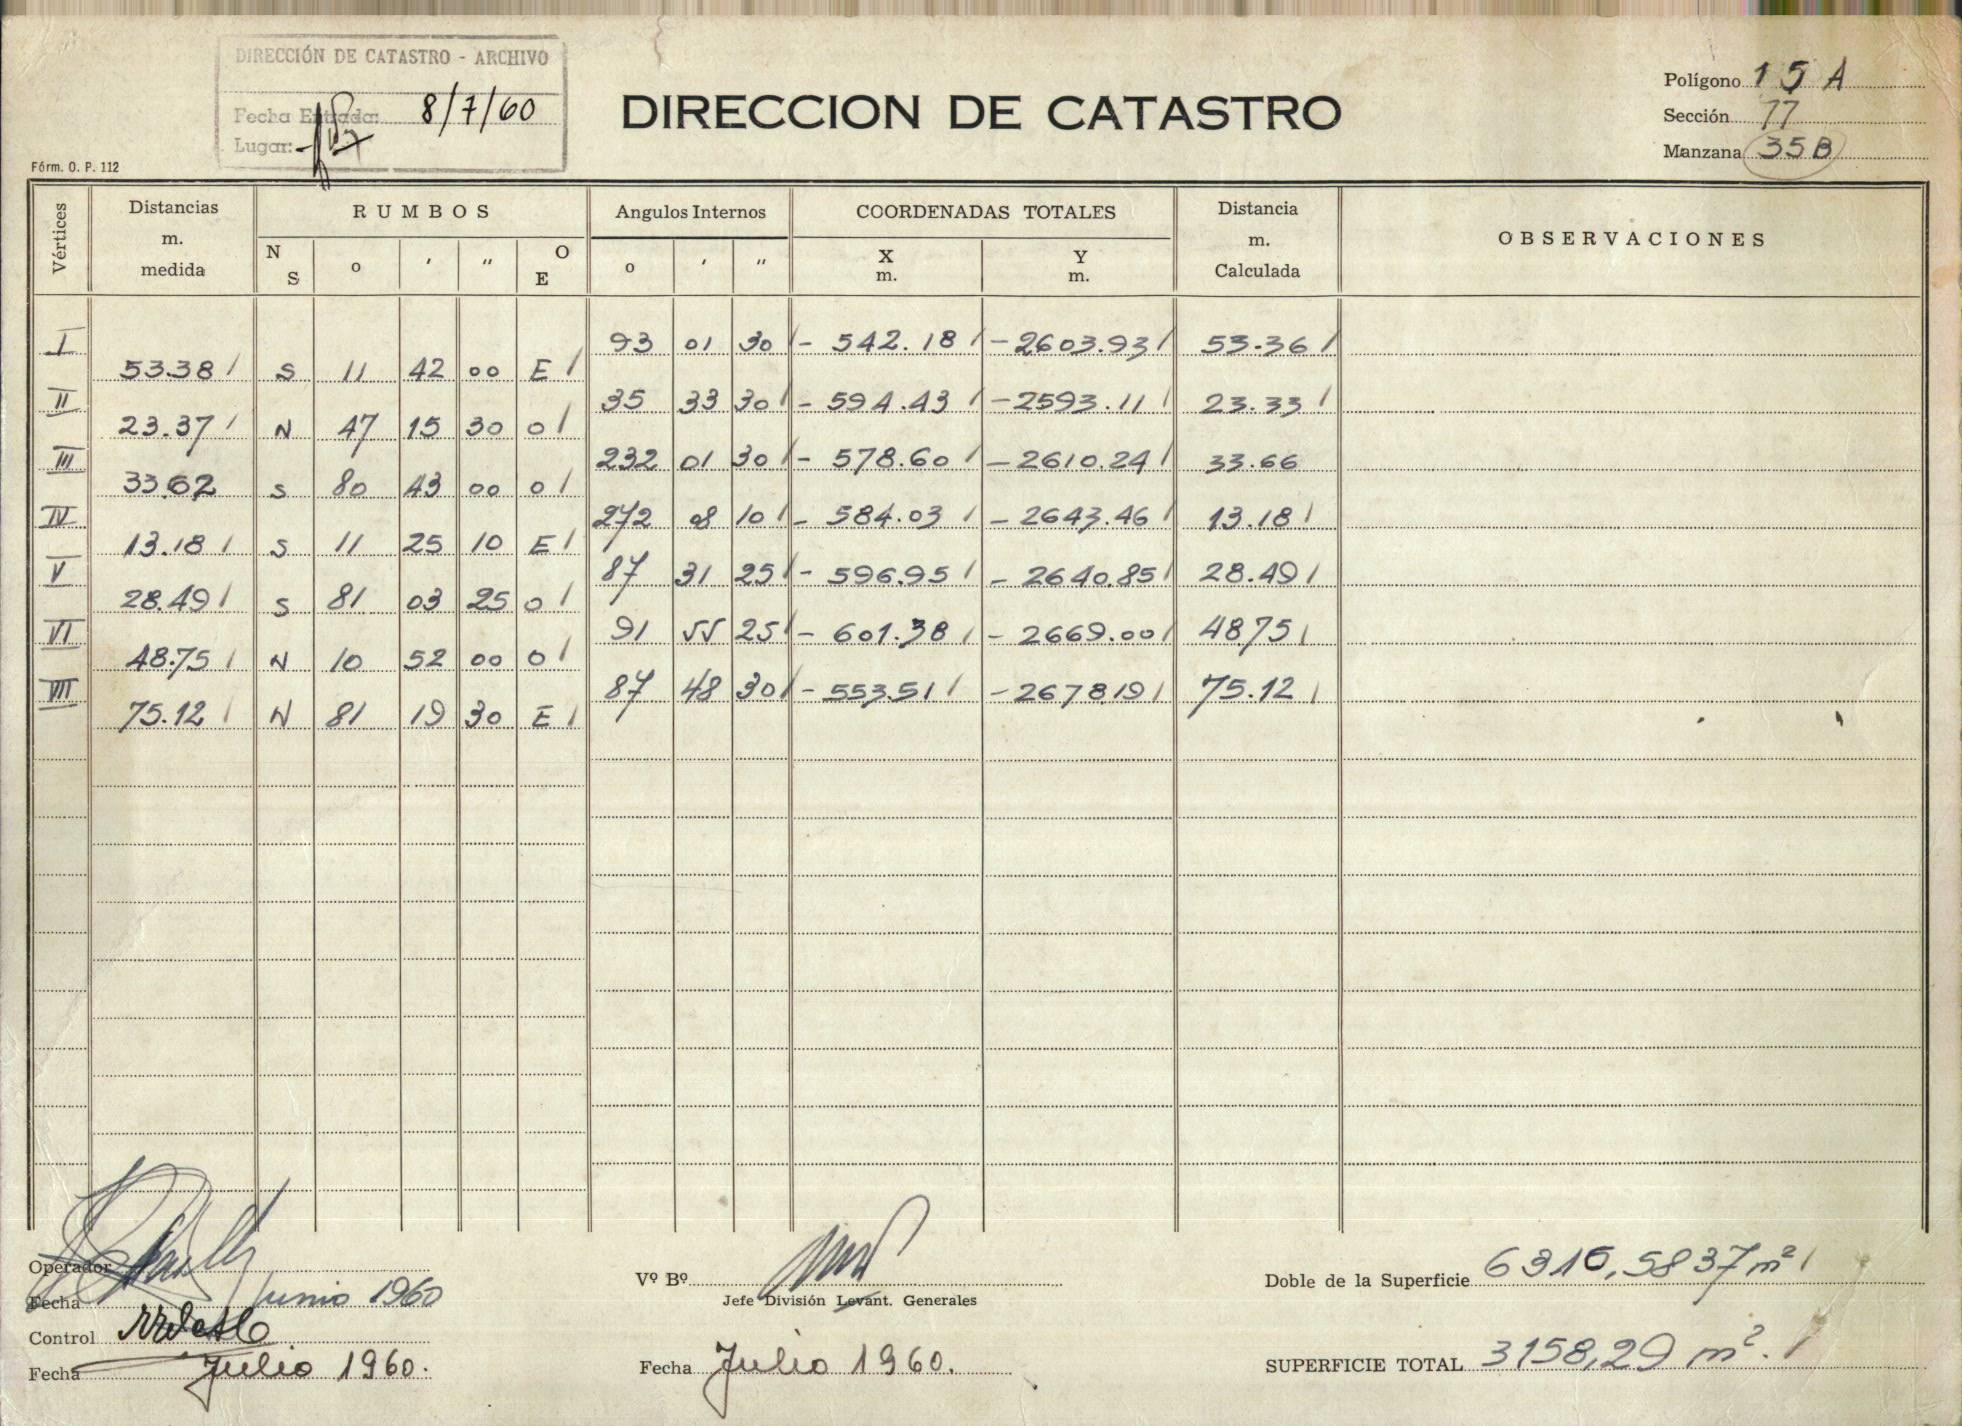 DIRECCIÓN DE CATASTRO - ARCHIVO
Fecha Entrada: 8/7/60
Lugar:
DIRECCION DE CATASTRO
Polígono 15 A
Sección 77
Manzana 35B
Fórm. O. P. 112
Vértices
Distancias m. medida
RUMBOS
N S o ' " O E
Angulos Internos
o ' "
COORDENADAS TOTALES
X m. Y m.
Distancia m. Calculada
OBSERVACIONES
I 93 01 30 - 542.18 -2603.93 53.36
53.38 S 11 42 00 E
II 35 33 30 - 594.43 -2593.11 23.33
23.37 N 47 15 30 O
III 232 01 30 - 578.60 -2610.24 33.66
33.62 S 80 43 00 O
IV 272 08 10 - 584.03 - 2643.46 13.18
13.18 S 11 25 10 E
V 87 31 25 - 596.95 - 2640.85 28.49
28.49 S 81 03 25 O
VI 91 55 25 - 601.38 - 2669.00 48.75
48.75 N 10 52 00 O
VII 87 48 30 - 553.51 -2678.19 75.12
75.12 N 81 19 30 E
Operador
Fecha Junio 1960
Control
Fecha Julio 1960.
Vº Bº
Jefe División Levant. Generales
Fecha Julio 1960.
Doble de la Superficie 6316,5837 m²
SUPERFICIE TOTAL 3158,29 m².